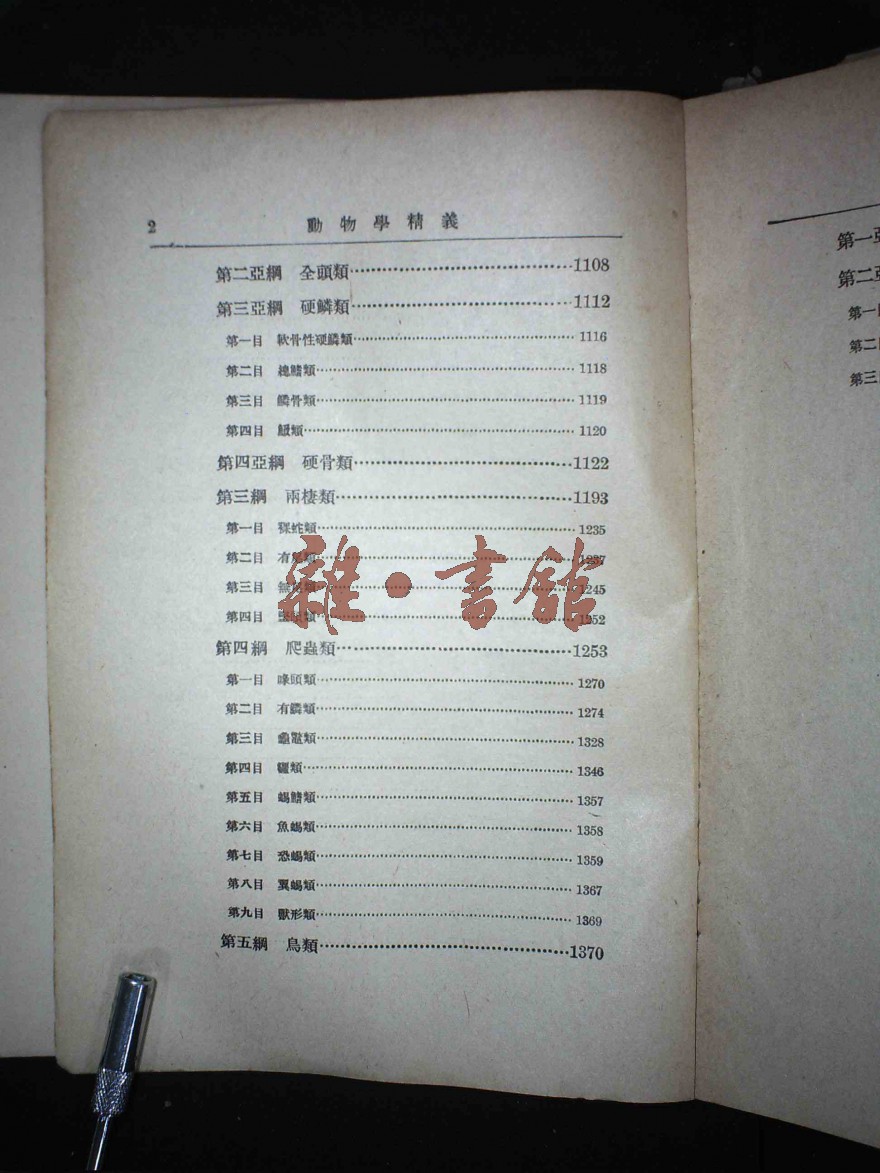 2 動物學精義
第二亞綱 全頭類 1108
第三亞綱 硬鱗類 1112
第一目 軟骨性硬鱗類 1116
第二目 總鰭類 1118
第三目 鱗骨類 1119
第四目 類 1120
第四亞綱 硬骨類 1122
第三綱 兩棲類 1193
第一目 裸蛇類 1235
第二目 有尾類 1237
第三目 無尾類 1245
第四目 堅頭類 1252
雜·書館
第四綱 爬蟲類 1253
第一目 喙頭類 1270
第二目 有鱗類 1274
第三目 龜鼈類 1328
第四目 鱷類 1346
第五目 蜴鰭類 1357
第六目 魚蜴類 1358
第七目 恐蜴類 1359
第八目 翼蜴類 1367
第九目 獸形類 1369
第五綱 鳥類 1370
第一亞
第二亞
第一目
第二目
第三目